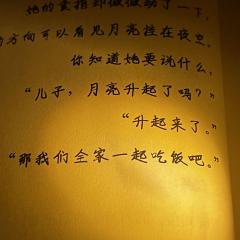 她的食指却微微动了一下,
的方向可以看见月亮挂在夜空。
你知道她要说什么,
“儿子,月亮升起了吗?”
“升起来了。”
“那我们全家一起吃饭吧。”